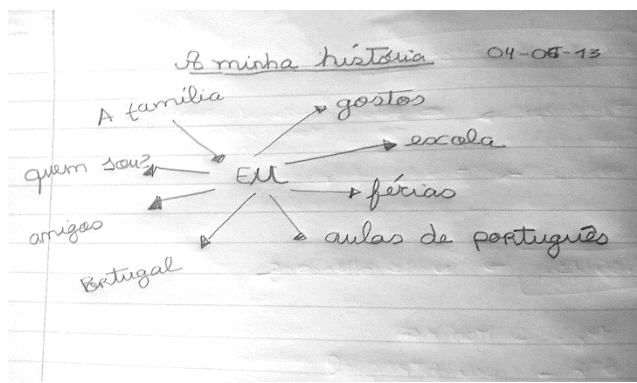 A minha história 04-05-13
A família
gostos
escola
quem sou?
EU
férias
amigos
aulas de português
Portugal